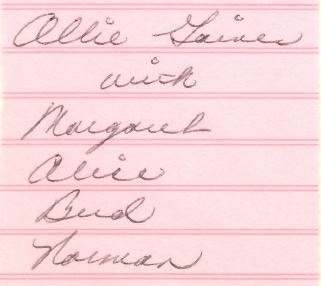 Allie Gaines
with
Margaret
Alice
Bud
Norman